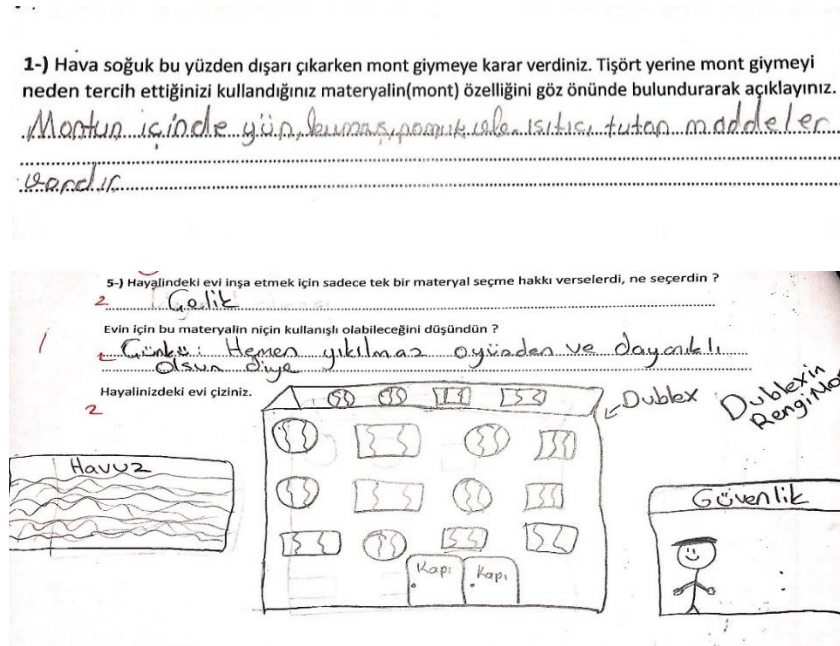 1-) Hava soğuk bu yüzden dışarı çıkarken mont giymeye karar verdiniz. Tişört yerine mont giymeyi
neden tercih ettiğinizi kullandığınız materyalin(mont) özelliğini göz önünde bulundurarak açıklayınız.
Montun içinde yün, kumaş, pamuk vb. ısıtıcı tutan maddeler
vardır
5-) Hayalindeki evi inşa etmek için sadece tek bir materyal seçme hakkı verselerdi, ne seçerdin ?
2 Çelik
Evin için bu materyalin niçin kullanışlı olabileceğini düşündün ?
1 Çünkü: Hemen yıkılmaz oyüzden ve dayanıklı
olsun diye
Hayalinizdeki evi çiziniz.
2
Dublex
Dublexin
Rengi
Havuz
Güvenlik
Kapı Kapı